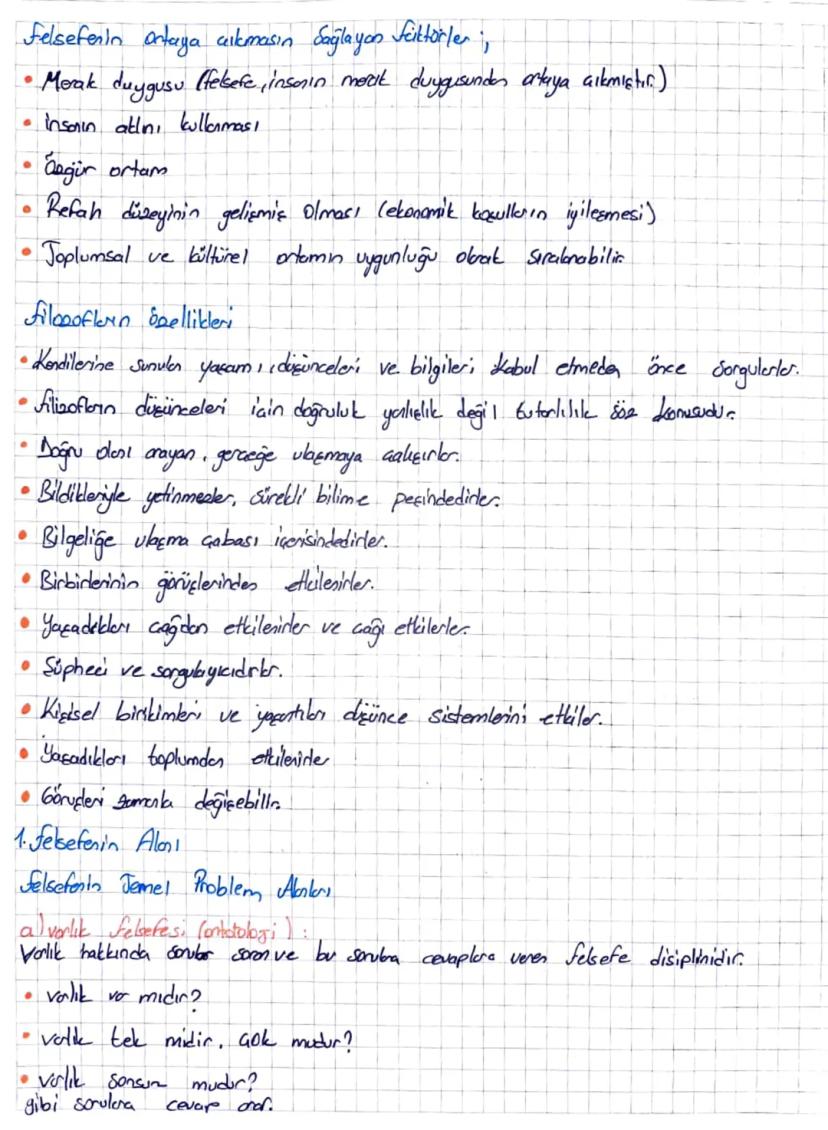 Felsefenin ortaya çıkmasın Sağlayan faktörler;,
• Merak duygusu (felsefe, insanın merak duygusundan ortaya çıkmıştır.)
• insanın aklını kullanması
• Özgür ortam
• Refah düzeyinin gelişmiş olması (ekonomik koşulların iyileşmesi)
• Toplumsal ve kültürel ortamın uygunluğu olarak sıralanabilir.
filozofların Özellikleri
• Kendilerine sunulan yaşamı, düşünceleri ve bilgileri kabul etmeden önce sorgularlar.
• filizofların düşünceleri için doğruluk yanlışlık değil tutarlılık söz konusudur.
• Doğru olanı arayan, gerçeğe ulaşmaya çalışırlar.
• Bildikleriyle yetinmezler, sürekli bilime peşindedirler.
• Bilgeliğe ulaşma çabası içerisindedirler.
• Birbirlerinin görüşlerinden etkilenirler.
• Yaşadıkları çağdan etkilenirler ve çağı etkilerler.
• Şüpheci ve sorgulayıcıdırlar.
• Kişisel birikimleri ve yaşantıları düşünce sistemlerini etkiler.
• Yaşadıkları toplumdan etkilenirle
• Görüşleri zamanla değişebilir.
1. felsefenin Alanı
felsefenin Temel Problem Alanları
a) varlık felsefesi (ontotoloji):
Varlık hakkında sorular soran ve bu sorulara cevaplara veren felsefe disiplinidir.
• varlık var mıdır?
• varlık tek midir, çok mudur?
• varlık sonsun mudur?
gibi sorulara cevap arar.